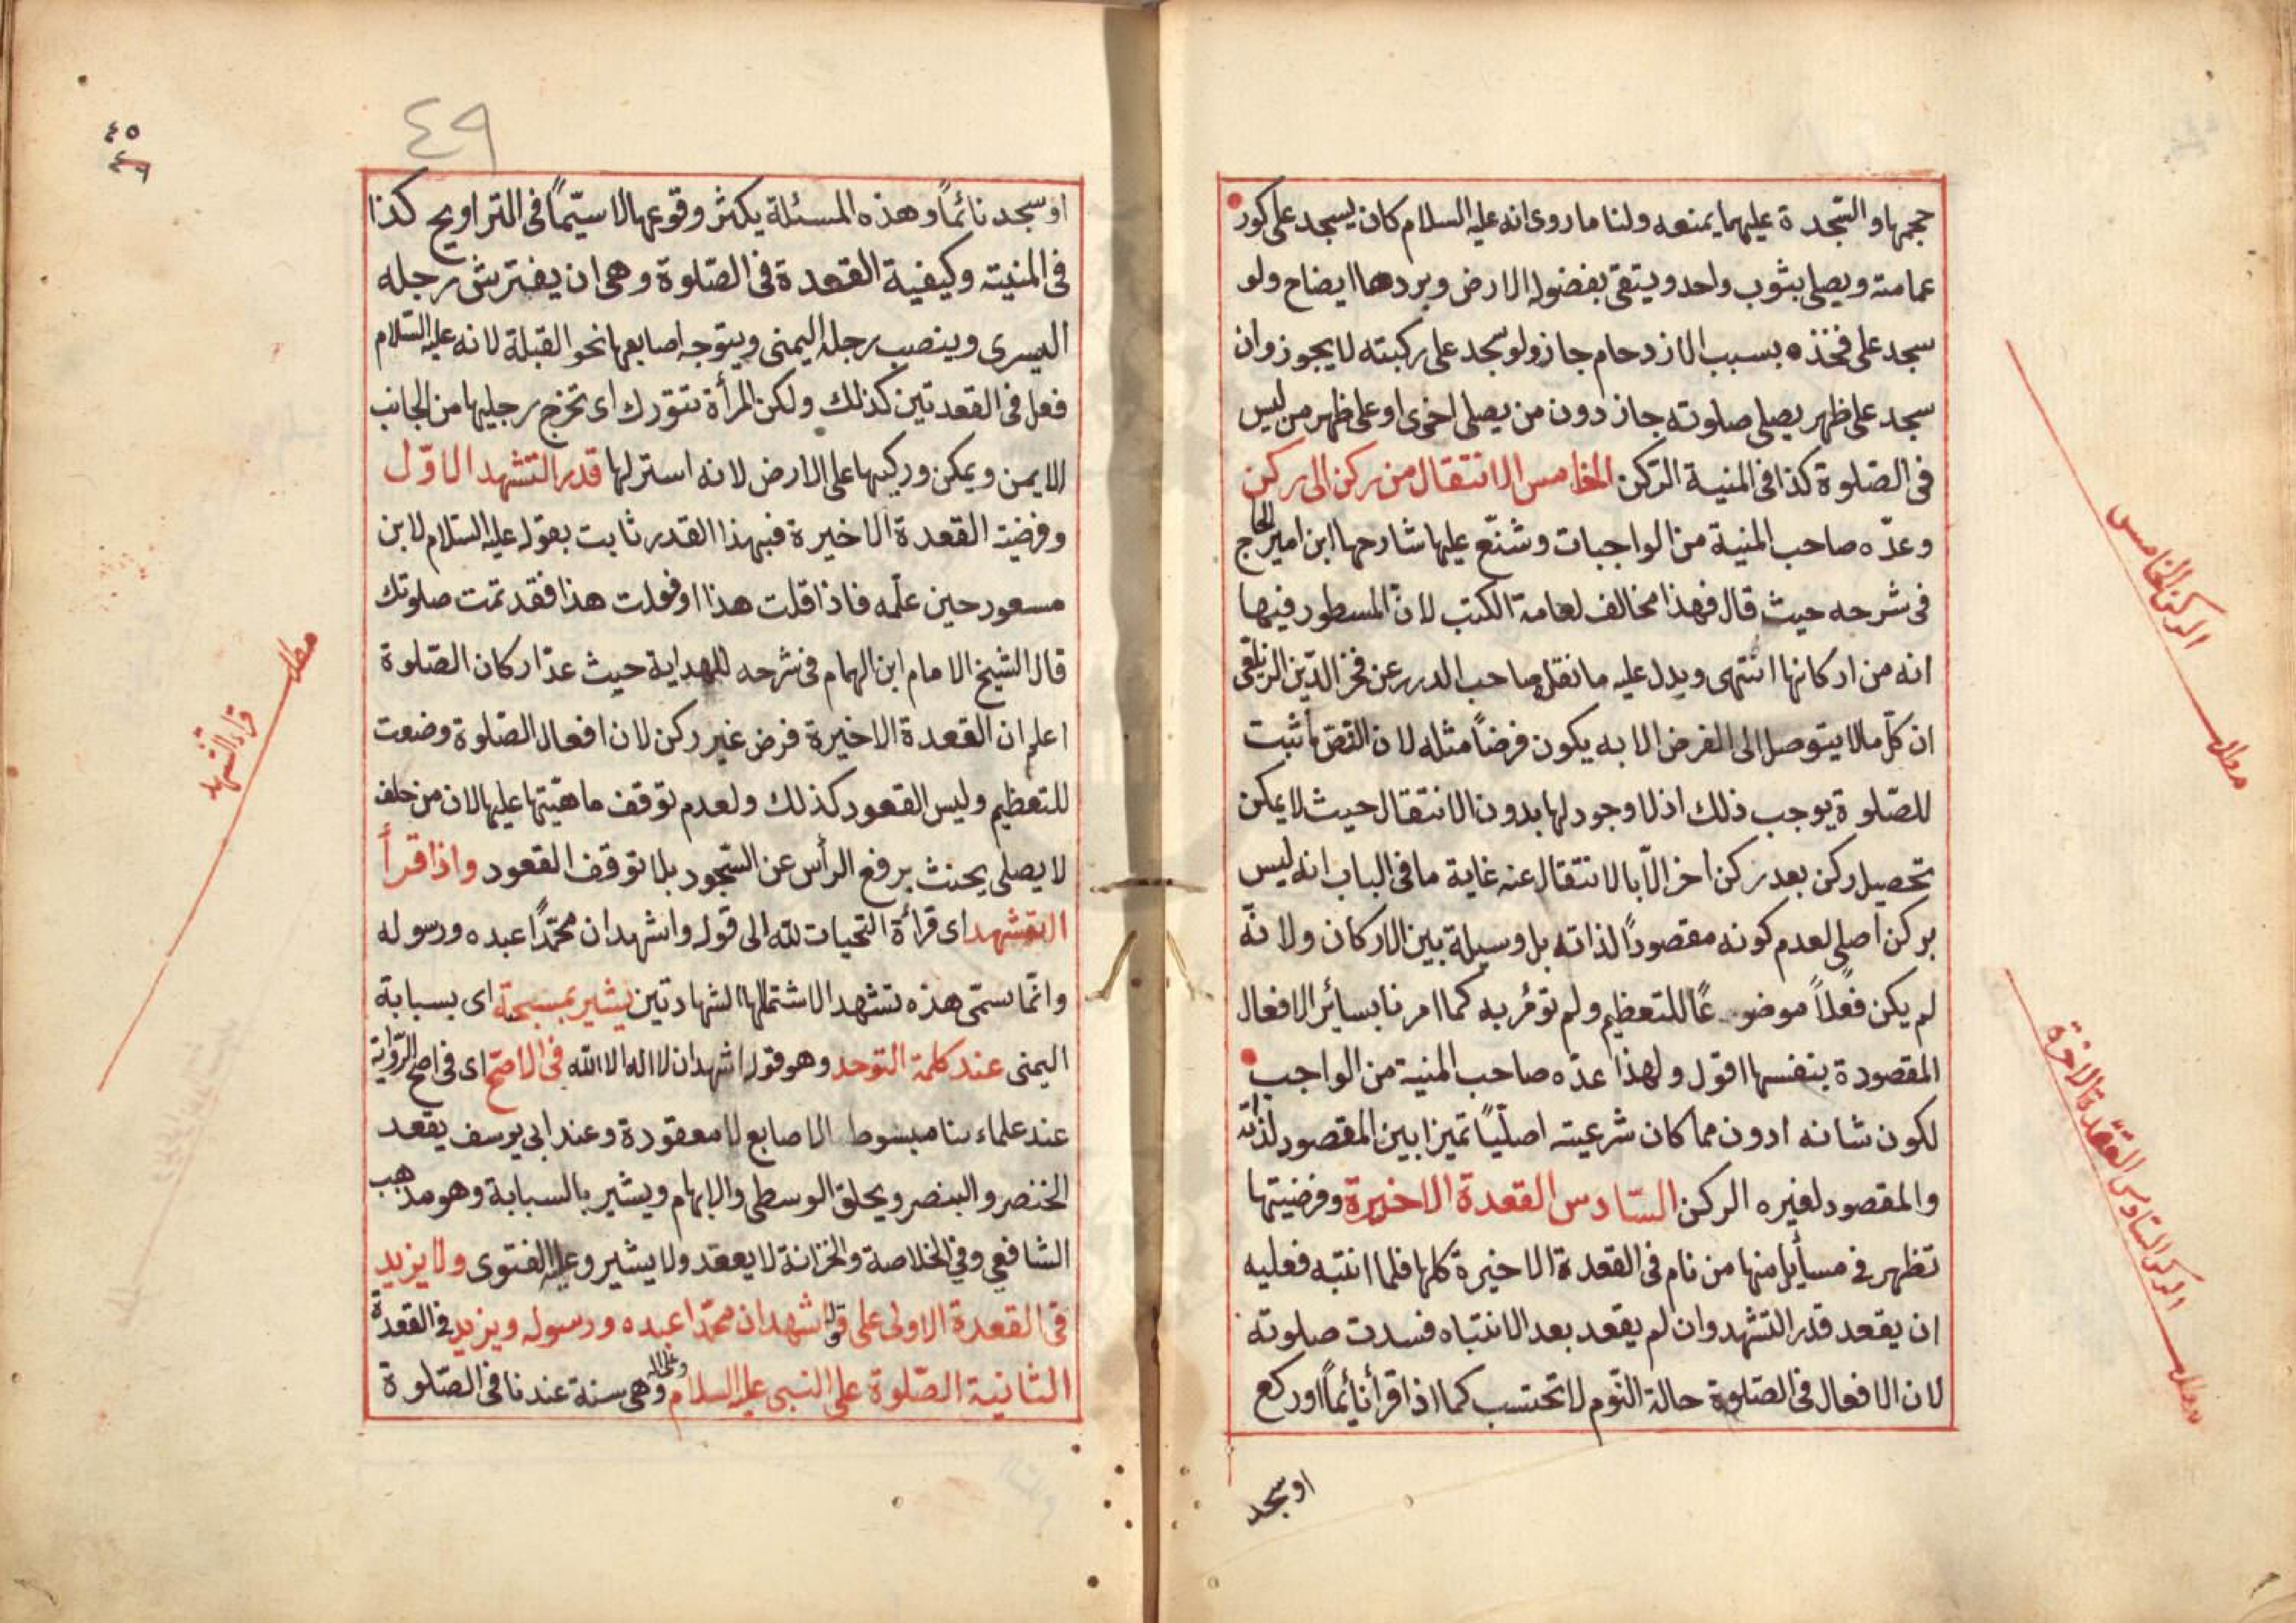 حجمها والسّجدة عليهما يمنعه ولنا ما روى انه عليه السلام كان يسجد على كور
عمامته ويصلى بثوب واحد ويتقى بفضوله الارض وبردها ايضاح ولو
سجد على فخذه بسبب الازدحام جاز ولو سجد على ركبته لا يجوز وان
سجد على ظهر يصلى صلوته جاز دون من يصلى اخرى او على ظهر من ليس
فى الصّلوة كذا فى المنية الرّكن الخامس الانتقال من ركن الى ركن
وعدّه صاحب المنية من الواجبات وشنّع عليها شارحها ابن امير الحاج
فى شرحه حيث قال فهذا مخالف لعامة الكتب لانّ المسطور فيها
انه من اركانها انتهى ويدل عليه ما نقل صاحب الدرر عن فخر الدّين الزيلعى
ان كلّ ما لا يتوصل الى الفرض الا به يكون فرضاً مثله لان النصّ ما ثبت
للصّلوة يوجب ذلك اذ لا وجود لها بدون الانتقال حيث لا يمكن
تحصيل ركن بعد ركن اخر الّا بالانتقال عنه غاية ما فى الباب انه ليس
بركن اصلى لعدم كونه مقصوداً لذاته بل وسيلة بين الاركان ولانّه
لم يكن فعلاً موضوعًا للتعظيم ولم تؤمر به كما امرنا بسائر الافعال
المقصودة بنفسها اقول ولهذا عدّه صاحب المنية من الواجب
لكون شانه ادون مما كان شرعيته اصليّاً تميزا بين المقصود لذاته
والمقصود لغيره الركن السّادس القعدة الاخيرة وفرضيتها
تظهر فى مسأيل منها من نام فى القعدة الاخيرة كلها فلما انتبه فعليه
ان يقعد قدر التشهد وان لم يقعد بعد الانتباه فسدت صلوته
لان الافعال فى الصّلوة حالة النّوم لا تحتسب كما اذا قرأ نائماً او ركع
او سجد
مطلب الركن الخامس
مطلب الركن السّادس القعدة الاخرة
٤٩
٤٥
او سجد نائماً وهذه المسئلة يكثر وقوعها لا سيّماً فى التراويح كذا
فى المنيته وكيفية القعدة فى الصّلوة وهى ان يفترش رجله
اليسرى وينصب رجله اليمنى ويتوجه اصابعها نحو القبلة لانه عليه السّلام
فعل فى القعدتين كذلك ولكن المرأة تتورك اى تخرج رجليها من الجانب
الايمن ويمكن وركيها على الارض لانه استر لها قدر التشهد الاوّل
وفرضيته القعدة الاخيرة فبهذا القدر ثابت بقوله عليه السّلام لابن
مسعود حين علّمه فاذا قلت هذا او فعلت هذا فقد تمت صلوتك
قال الشيخ الامام ابن الهمام فى شرحه للهداية حيث عدّ اركان الصّلوة
اعلم ان القعدة الاخيرة فرض غير ركن لان افعال الصّلوة وضعت
للتعظيم وليس القعود كذلك ولعدم توقف ماهيّتها عليها لان من حلف
لا يصلى يحنث برفع الرأس عن السّجود بلا توقف القعود واذا قرأ
التشهد اى قراءة التحيات لله الى قوله واشهد ان محمّداً عبده ورسوله
وانّما يسمّى هذه تشهد الاشتمالها الشهادتين يشير بمسبحته اى بسبابة
اليمنى عند كلمة التوحد وهو قوله اشهد ان لا اله الا الله فى الاصحّ اى فى اصح الرّواية
عند علماءنا مبسوط الاصابع لا معقودة وعند ابى يوسف يقعد
الخنصر والبنصر ويحلق الوسطى والابهام ويشير بالسبابة وهو مذهب
الشافعى وفى الخلاصة والخزانة لا يعقد ولا يشير وعليه الفتوى ولا يزيد
فى القعدة الاولى على قوله اشهد ان محمّدا عبده ورسوله ويزيد فى القعدة
الثانية الصّلوة على النبى عليه السلام وعلى اله وهى سنة عندنا فى الصّلوة
مطلب قراءة التّشهد